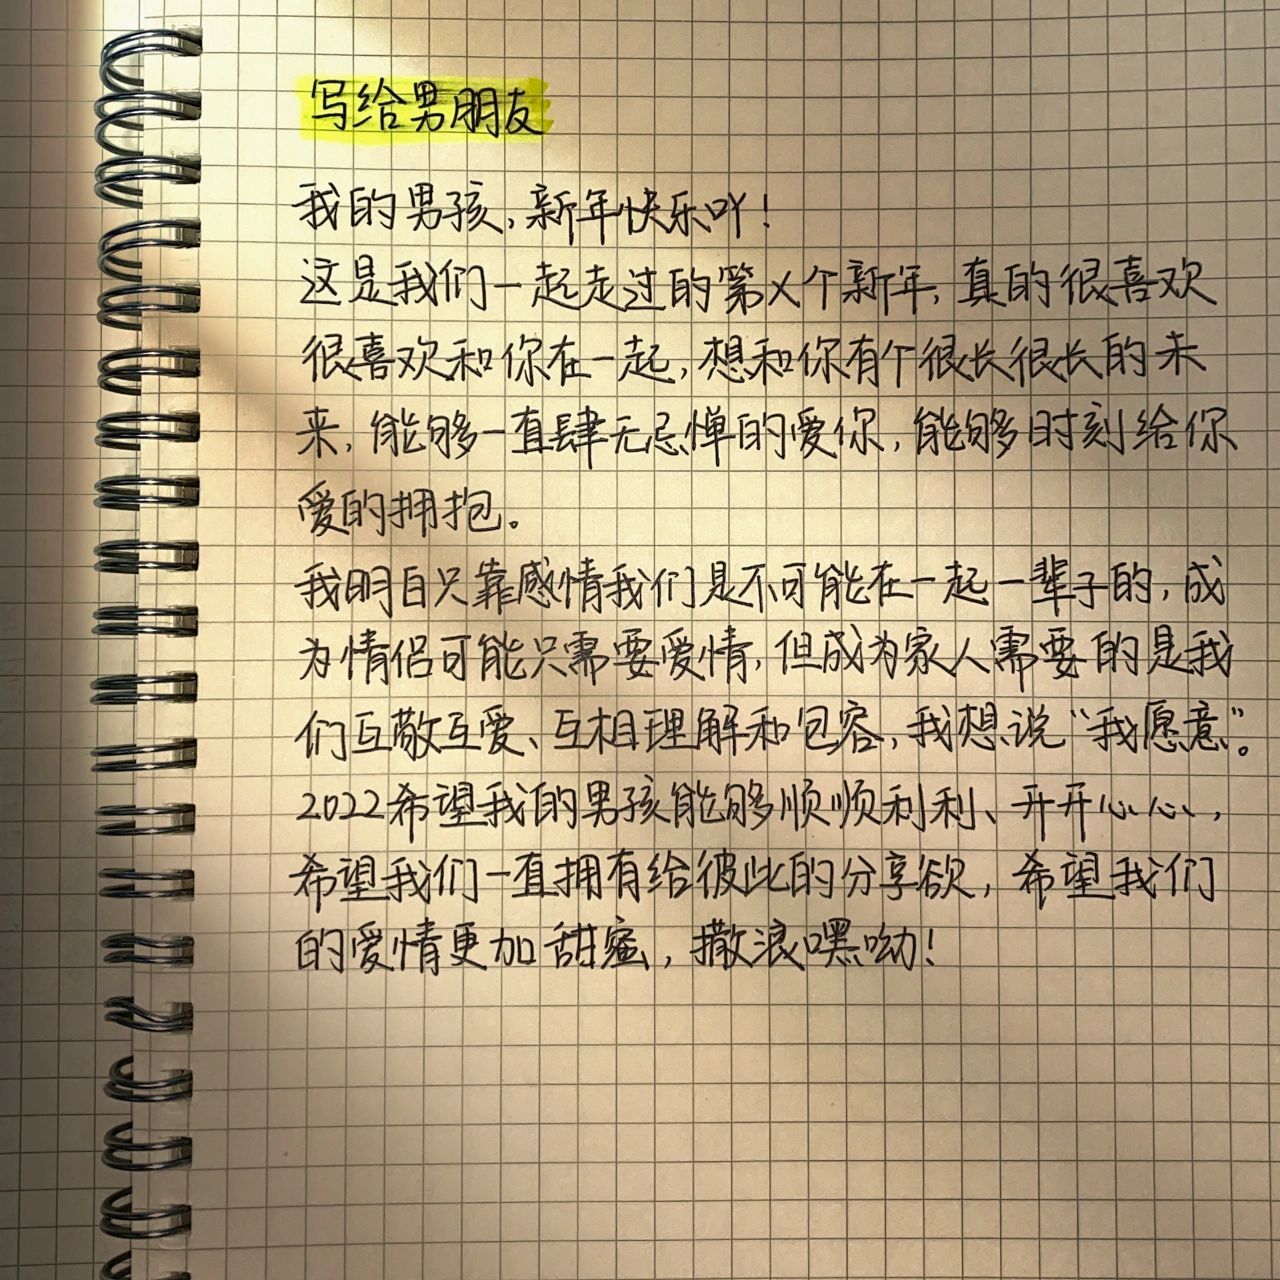 写给男朋友
我的男孩，新年快乐吖！
这是我们一起走过的第X个新年，真的很喜欢
很喜欢和你在一起，想和你有个很长很长的未
来，能够一直肆无忌惮的爱你，能够时刻给你
爱的拥抱。
我明白只靠感情我们是不可能在一起一辈子的，成
为情侣可能只需要爱情，但成为家人需要的是我
们互敬互爱、互相理解和包容，我想说“我愿意”。
2022希望我的男孩能够顺顺利利、开开心心，
希望我们一直拥有给彼此的分享欲，希望我们
的爱情更加甜蜜，撒浪嘿呦！